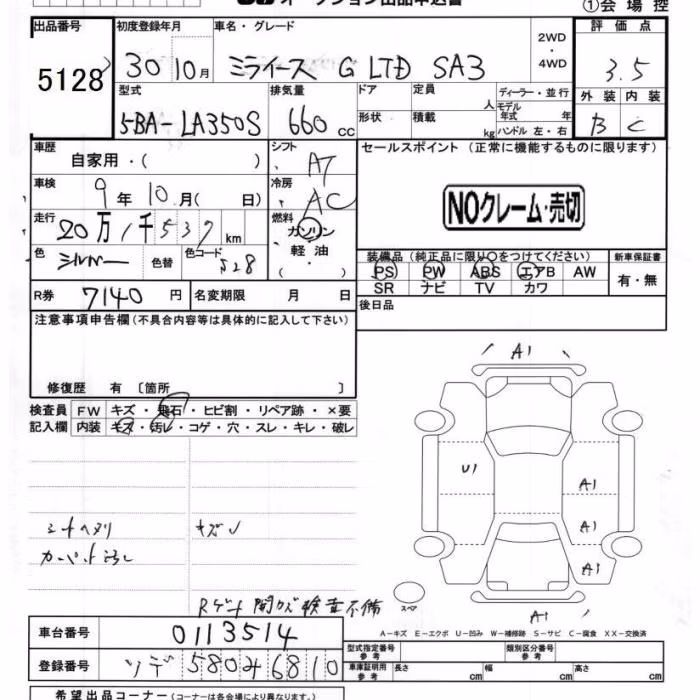 オークション出品申込書
①会場控
出品番号 5128
初度登録年月 30年10月
車名・グレード ミライース G LTD SA3
2WD・4WD
評価点 3.5
外装 B 内装 C
型式 5BA-LA350S
排気量 660 cc
ドア
形状
定員 人
積載 kg
ディーラー・並行
モデル年式 年
ハンドル 左・右
車歴 自家用・( )
シフト AT
車検 9年10月( 日)
冷房 AC
走行 20万1千537km
燃料 ガソリン・軽油・( )
色 シルバー 色替 色コード S28
セールスポイント (正常に機能するものに限ります)
NOクレーム・売切
装備品 (純正品に限り○をつけてください)
PS PW ABS エアB AW
SR ナビ TV カワ
新車保証書 有・無
R券 7140円
名変期限 月 日
後日品
注意事項申告欄(不具合内容等は具体的に記入して下さい)
修復歴 有 〔箇所 〕
検査員記入欄
FW キズ・飛石・ヒビ割・リペア跡・×要
内装 キズ・汚レ・コゲ・穴・スレ・キレ・破レ
シートヘタリ キズ
カーペット汚れ
Rゲート開カズ検査不備
A1
U1
A1
A1
A1
A1
スペア
A-キズ E-エクボ U-凹み W-補修跡 S-サビ C-腐食 XX-交換済
車台番号 0113514
登録番号 ソデ580み6810
型式指定番号 参考
類別区分番号 参考
車庫証明用 参考 長さ cm 幅 cm 高さ cm
希望出品コーナー(コーナーは各会場により異なります。)